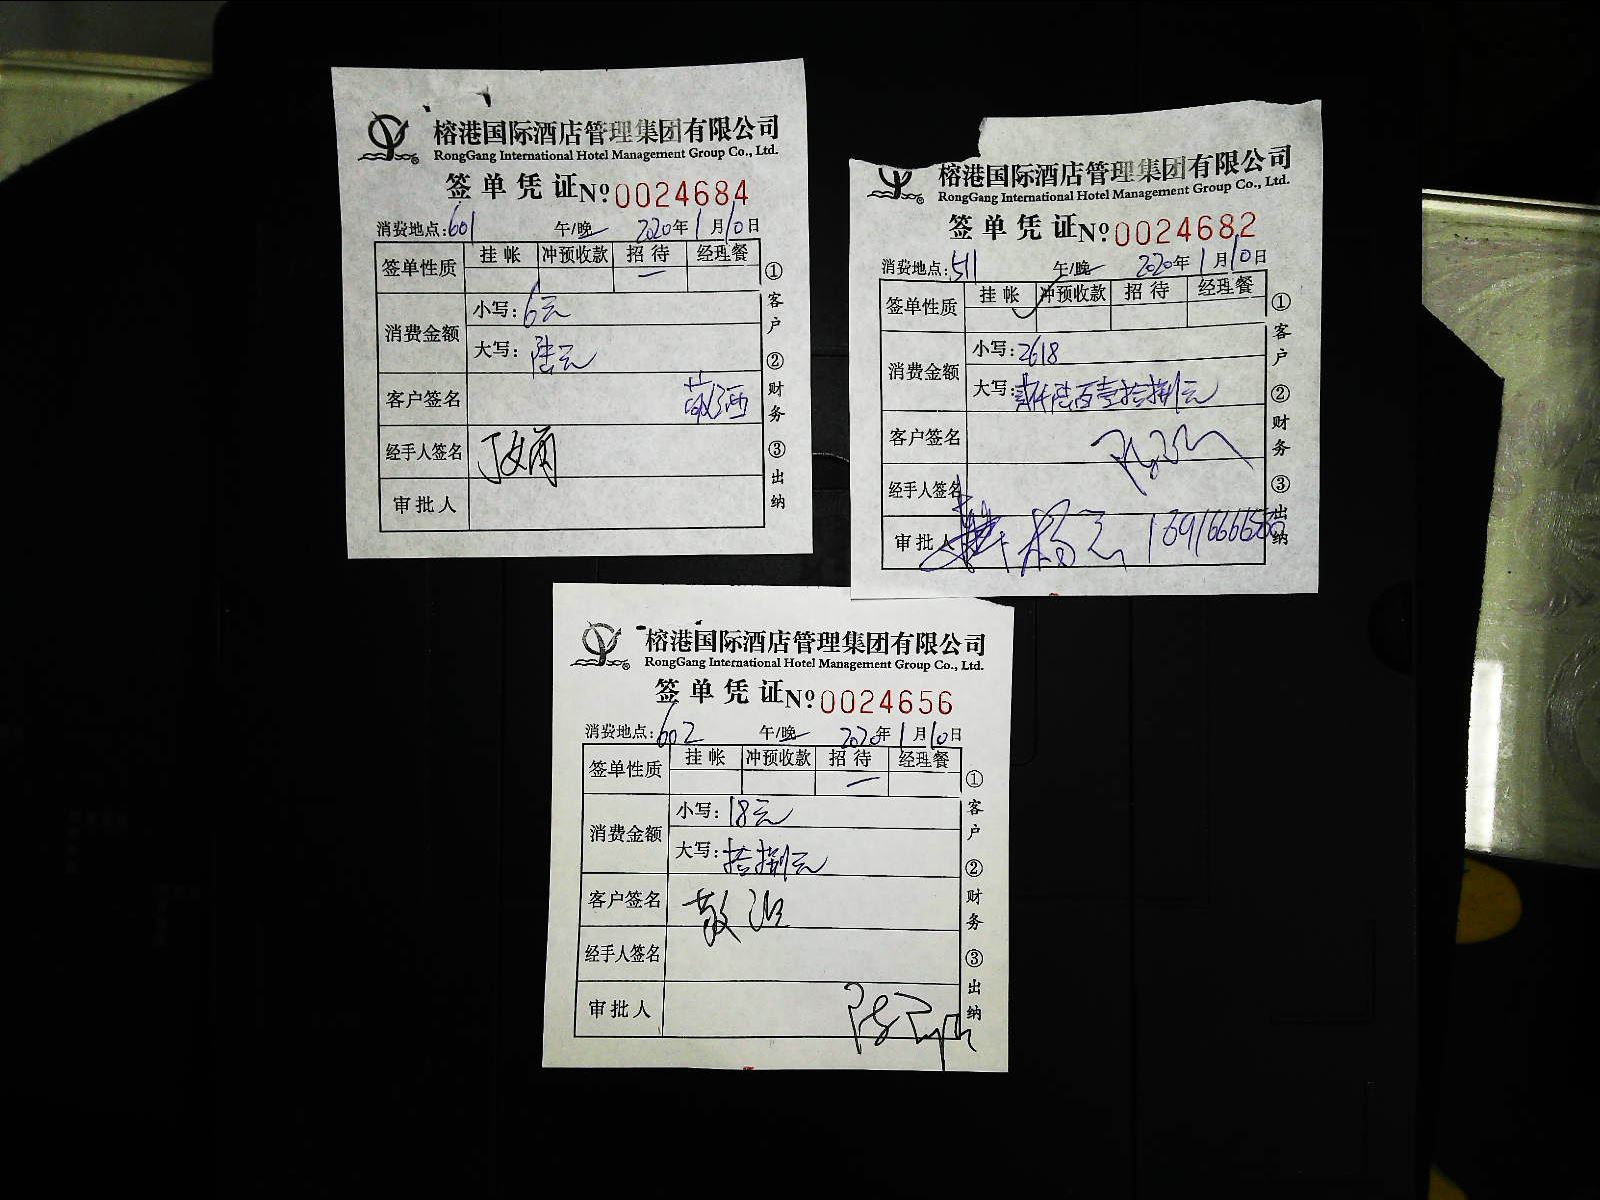 榕港国际酒店管理集团有限公司
RongGang International Hotel Management Group Co., Ltd.
签单凭证 Nº 0024684
消费地点:601 午/晚 2020年1月10日
签单性质 挂帐 冲预收款 招待 经理餐
消费金额
小写:6元
大写:陆元
客户签名
经手人签名
审批人
①客户 ②财务 ③出纳
榕港国际酒店管理集团有限公司
RongGang International Hotel Management Group Co., Ltd.
签单凭证 Nº 0024682
消费地点:511 午/晚 2020年1月10日
签单性质 挂帐 冲预收款 招待 经理餐
消费金额
小写:2618
大写:贰仟陆百壹拾捌元
客户签名
经手人签名
审批人
①客户 ②财务 ③出纳
榕港国际酒店管理集团有限公司
RongGang International Hotel Management Group Co., Ltd.
签单凭证 Nº 0024656
消费地点:602 午/晚 2020年1月10日
签单性质 挂帐 冲预收款 招待 经理餐
消费金额
小写:18元
大写:拾捌元
客户签名
经手人签名
审批人
①客户 ②财务 ③出纳